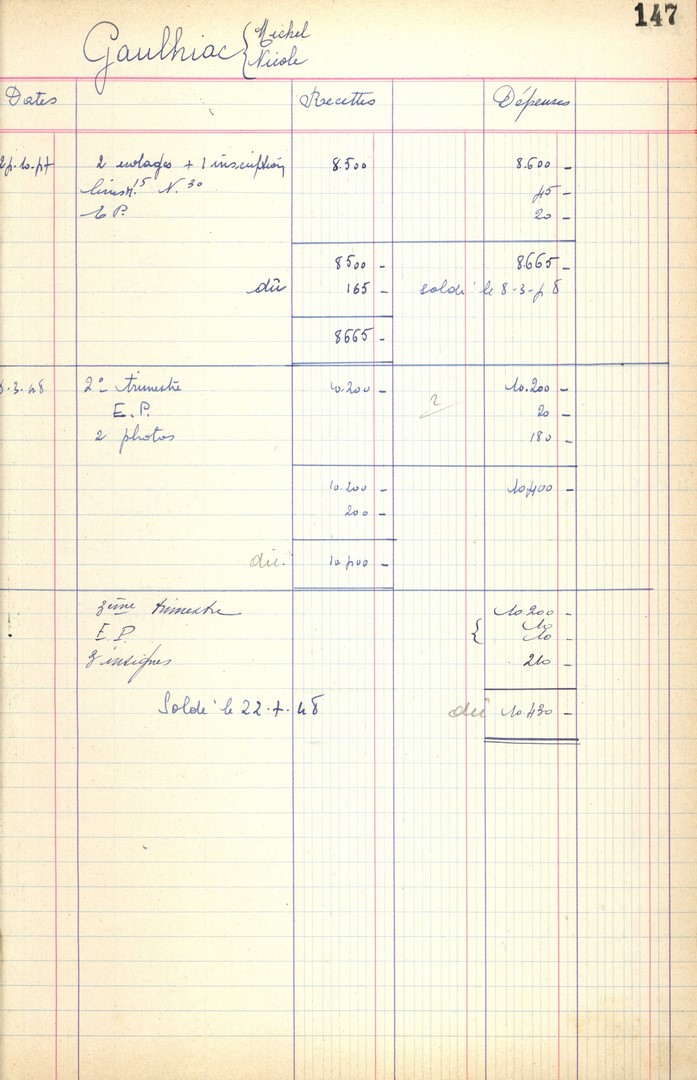 147
Gaulhiac { Michel
Nicole
Dates Recettes Dépenses
2 + 1 inscription 8.500 8.600 -
N. 30 45 -
E P. 20 -
8500 - 8.665 -
dû 165 - soldé le 8-3-48
8665 -
8.3.48 2e trimestre 10.200 - 10.200 -
E.P. 2 20 -
2 photos 180 -
10.200 - 10.400 -
200 -
dû. 10.400 -
3ème trimestre 10.200 -
E.P. { 10
10 -
3 insignes 210 -
Soldé le 22.7.48 dû 10.430 -